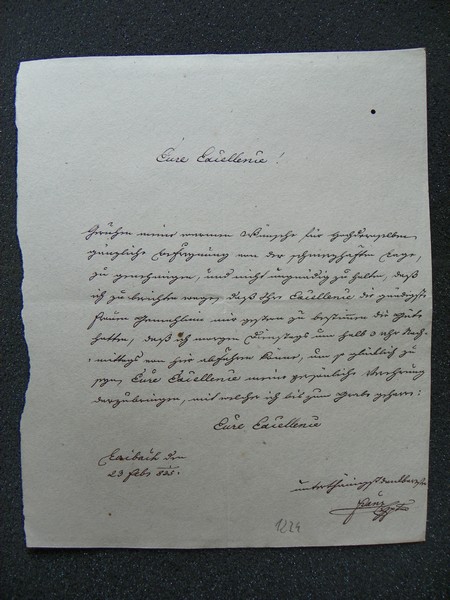 Eure Excellence!
Geruhen meine warmen Wünsche für Hochderoselben
gänzliche Befreyung von der schmerzhaften Lage,
zu genehmigen, und nicht ungnädig zu halten, daß
ich zu berichten wage, daß Ihre Excellence die gnädigste
Frau Gemahlin mir gestern zu bestimmen die Güte
hatten, daß ich morgen Dienstags um halb 3 Uhr Nach-
mittags von hier abfahren könne, um so glücklich zu
seyn, Eure Excellence meine persönliche Verehrung
darzubringen, mit welcher ich bis zum Grabe geharre:
Eure Excellence
Laibach den
29 Feb
unterthänigst dankbarster
Franz
1224